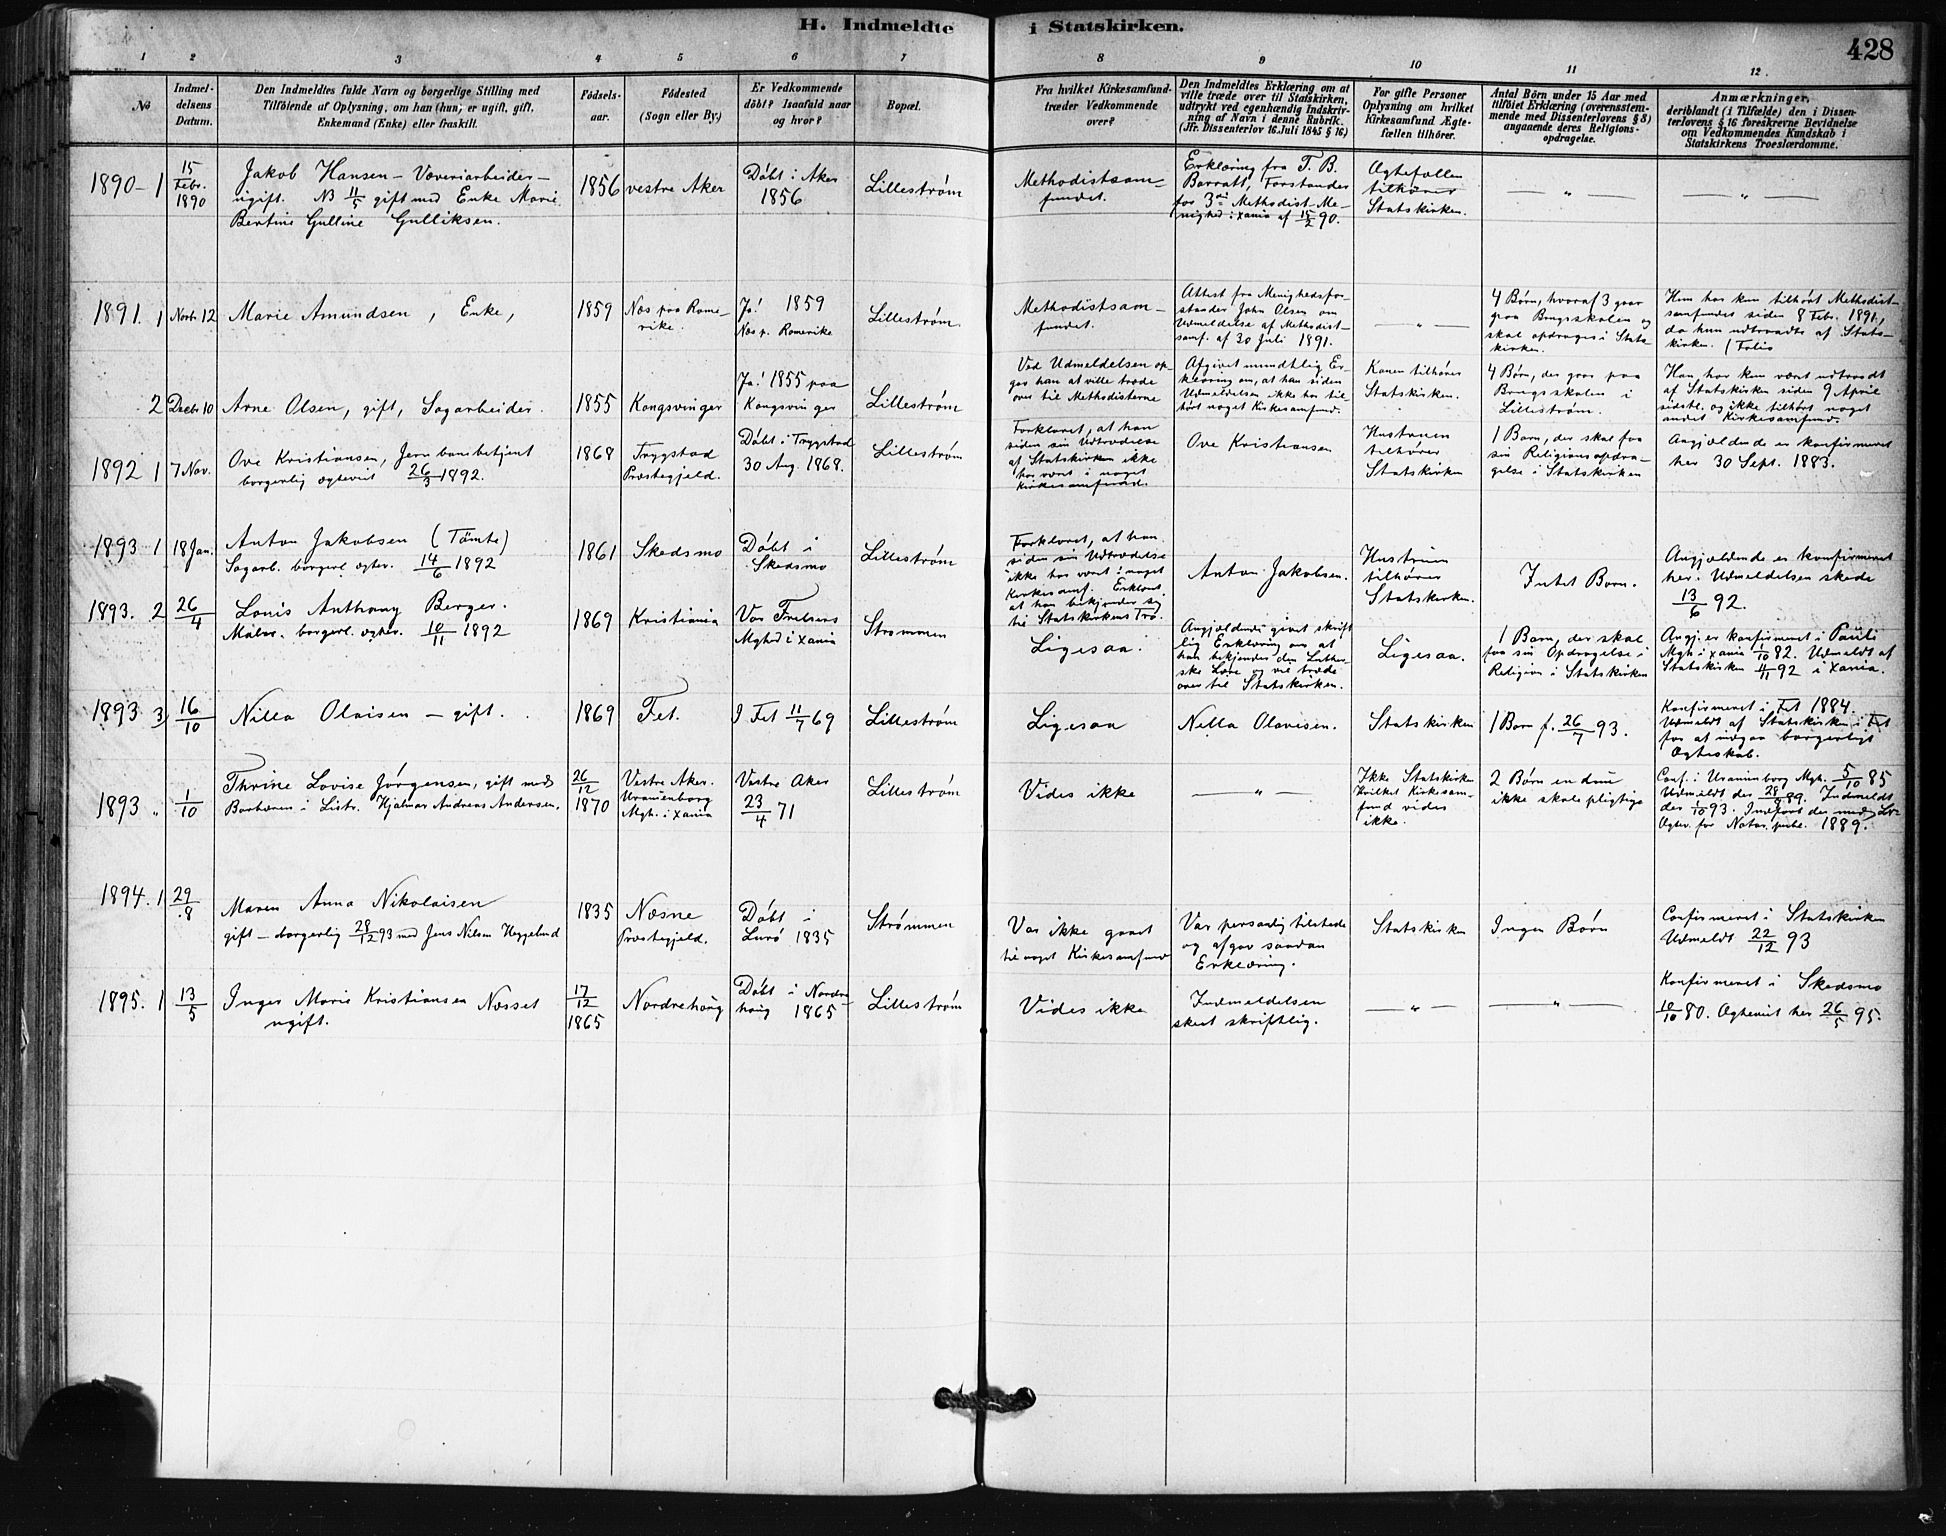 H. Indmeldte i Statskirken.
428
1 2 3 4 5 6 7 8 9 10 11 12.
No
Indmel-
delsens
Datum.
Den Indmeldtes fulde Navn og borgerlige Stilling med
Tilföiende af Oplysning, om han (hun) er ugift, gift,
Enkemand (Enke) eller fraskilt.
Födsels-
aar.
Födested
(Sogn eller By.)
Er Vedkommende
döbt? Isaafald naar
og hvor?
Bopæl.
Fra hvilket Kirkesamfund
træder Vedkommende
over?
Den Indmeldtes Erklæring om at
ville træde over til Statskirken,
udtrykt ved egenhændig Indskriv-
ning af Navn i denne Rubrik.
(Jfr. Dissenterlov 16. Juli 1845 § 16)
For gifte Personer
Oplysning om hvilket
Kirkesamfund Ægte-
fællen tilhörer.
Antal Börn under 15 Aar med
tilföiet Erklæring (overensstem-
mende med Dissenterlovens § 8)
angaaende deres Religions-
opdragelse.
Anmærkninger,
deriblandt (i Tilfælde) den i Dissen-
terlovens § 16 foreskrevne Bevidnelse
om Vedkommendes Kundskab i
Statskirkens Troeslærdomme.
1890 – 1
15
Febr.
1890
Jakob Hansen – Væveriarbeider –
ugift. NB 11/5 gift med Enke Marie
Bertine Gulline Gulliksen.
1856
vestre Aker
Döbt i Aker
1856
Lilleström
Methodistsam-
fundet.
Erklæring fra T. B.
Barratt, Forstander
for 3die Methodist-Me-
nighed i Xania af 15/2 90.
Ægtefællen
tilhörer
Statskirken.
— „ —
— „ —
1891. 1
Novbr 12
Marie Amundsen, Enke,
1859
Næs paa Rome-
rike.
Ja! 1859
Næs p. Romerike
Lilleström
Methodistsam-
fundet.
Attest fra Menighedsfor-
stander John Olsen om
Udmeldelse af Methodist-
samf. af 30 Juli 1891.
— „ —
4 Börn, hvoraf 3 gaar
paa Brugsskolen og
skal opdrages i Stats-
kirken.
Hun har kun tilhört Methodist-
samfundet siden 8 Febr. 1891,
da hun udtraadte af Stats-
kirken. (Folio
2
Decbr 10
Arne Olsen, gift, Sagarbeider.
1855
Kongsvinger
Ja! 1855 paa
Kongsvinger
Lilleström
Ved Udmeldelsen op-
gav han at ville træde
over til Methodisterne
Afgivet mundtlig Er-
klæring om, at han siden
Udmeldelsen ikke har til-
hört noget Kirkesamfund.
Konen tilhörer
Statskirken.
4 Börn, der gaar paa
Brugsskolen i
Lilleström.
Han har kun været udtraadt
af Statskirken siden 9 April
sidstl. og ikke tilhört noget
andet Kirkesamfund.
1892 1
7 Nov.
Ove Kristiansen, Jernbanebetjent
borgerlig ægteviet 26/3 1892.
1868
Trygstad
Præstegjeld.
Döbt i Trygstad
30 Aug. 1868.
Lilleström
Forklaret, at han
siden sin Udtrædelse
af Statskirken ikke
har været i noget
Kirkesamfund.
Ove Kristiansen
Hustruen
tilhörer
Statskirken
1 Barn, der skal faa
sin Religionsopdra-
gelse i Statskirken
Angjældende er konfirmeret
her 30 Sept. 1883.
1893 1
18 Jan.
Anton Jakobsen (Tömte)
Sagarb. borgerl. ægtev. 14/6 1892
1861
Skedsmo
Döbt i
Skedsmo
Lilleström
Forklaret, at han
siden sin Udtrædelse
ikke har været i noget
Kirkesamf. Erklæret
at han bekjender sig
til Statskirkens Tro.
Anton Jakobsen.
Hustruen
tilhörer
Statskirken.
Intet Barn.
Angjældende er konfirmeret
her. Udmeldelsen skede
13/6 92.
1893. 2
26/4
Louis Anthony Berger.
Maler. borgerl. ægtev. 10/11 1892
1869
Kristiania
Vor Frelsers
Mghed i Xania
Strømmen
Ligesaa.
Angjældende givet skrift-
lig Erklæring om at
han bekjender den Luther-
ske Lære og vil træde
over til Statskirken.
Ligesaa.
1 Barn, der skal
faa sin Opdragelse i
Religion i Statskirken
Angj. er konfirmeret i Pauli
Mgh i Xania 1/10 82. Udmeldt af
Statskirken 11/11 92 i Xania.
1893 3
16/10
Nilla Olaisen – gift.
1869
Fet.
I Fet 11/7 69
Lilleström
Ligesaa
Nella Olavisen.
Statskirken
1 Barn f. 26/7 93.
Konfirmeret i Fet 1884.
Udmeldt af Statskirken i Fet
for at indgaa borgerligt
Ægteskab.
1893 „
1/10
Thrine Lovise Jörgensen, gift med
Barberer i Listr. Hjalmar Andreas Andersen.
26/12
1870
Vestre Aker.
Uranienborg
Mgh. i Xania
Vestre Aker
23/4 71
Lilleström
Vides ikke
— „ —
Ikke Statskirken
Hvilket Kirkesam-
fund vides
ikke.
2 Börn endnu
ikke skolepligtige
Conf. i Uranienborg Mgh. 5/10 85
Udmeldt der 28/8 89. Indmeldt
der 1/10 93. Indfört der med
Ægtev. for Notar. publ. 1889.
1894. 1
29/8
Maren Anna Nikolaisen
gift – borgerlig 28/12 93 med Jens Nilsen Heggelund
1835
Næsne
Præstegjeld.
Döbt i
Lurö 1835
Strømmen
Var ikke gaaet
til noget Kirkesamfund
Var personlig tilstede
og afgav saadan
Erklæring.
Statskirken
Ingen Börn
Confirmeret i Statskirken
Udmeldt 22/12 93
1895. 1
13/5
Inger Marie Kristiansen Næsset
ugift.
17/12
1865
Nordrehaug
Döbt i Nordre-
haug 1865
Lilleström
Vides ikke
Indmeldelsen
skeet skriftlig.
— „ —
— „ —
Konfirmeret i Skedsmo
10/10 80. Ægteviet her 26/5 95.